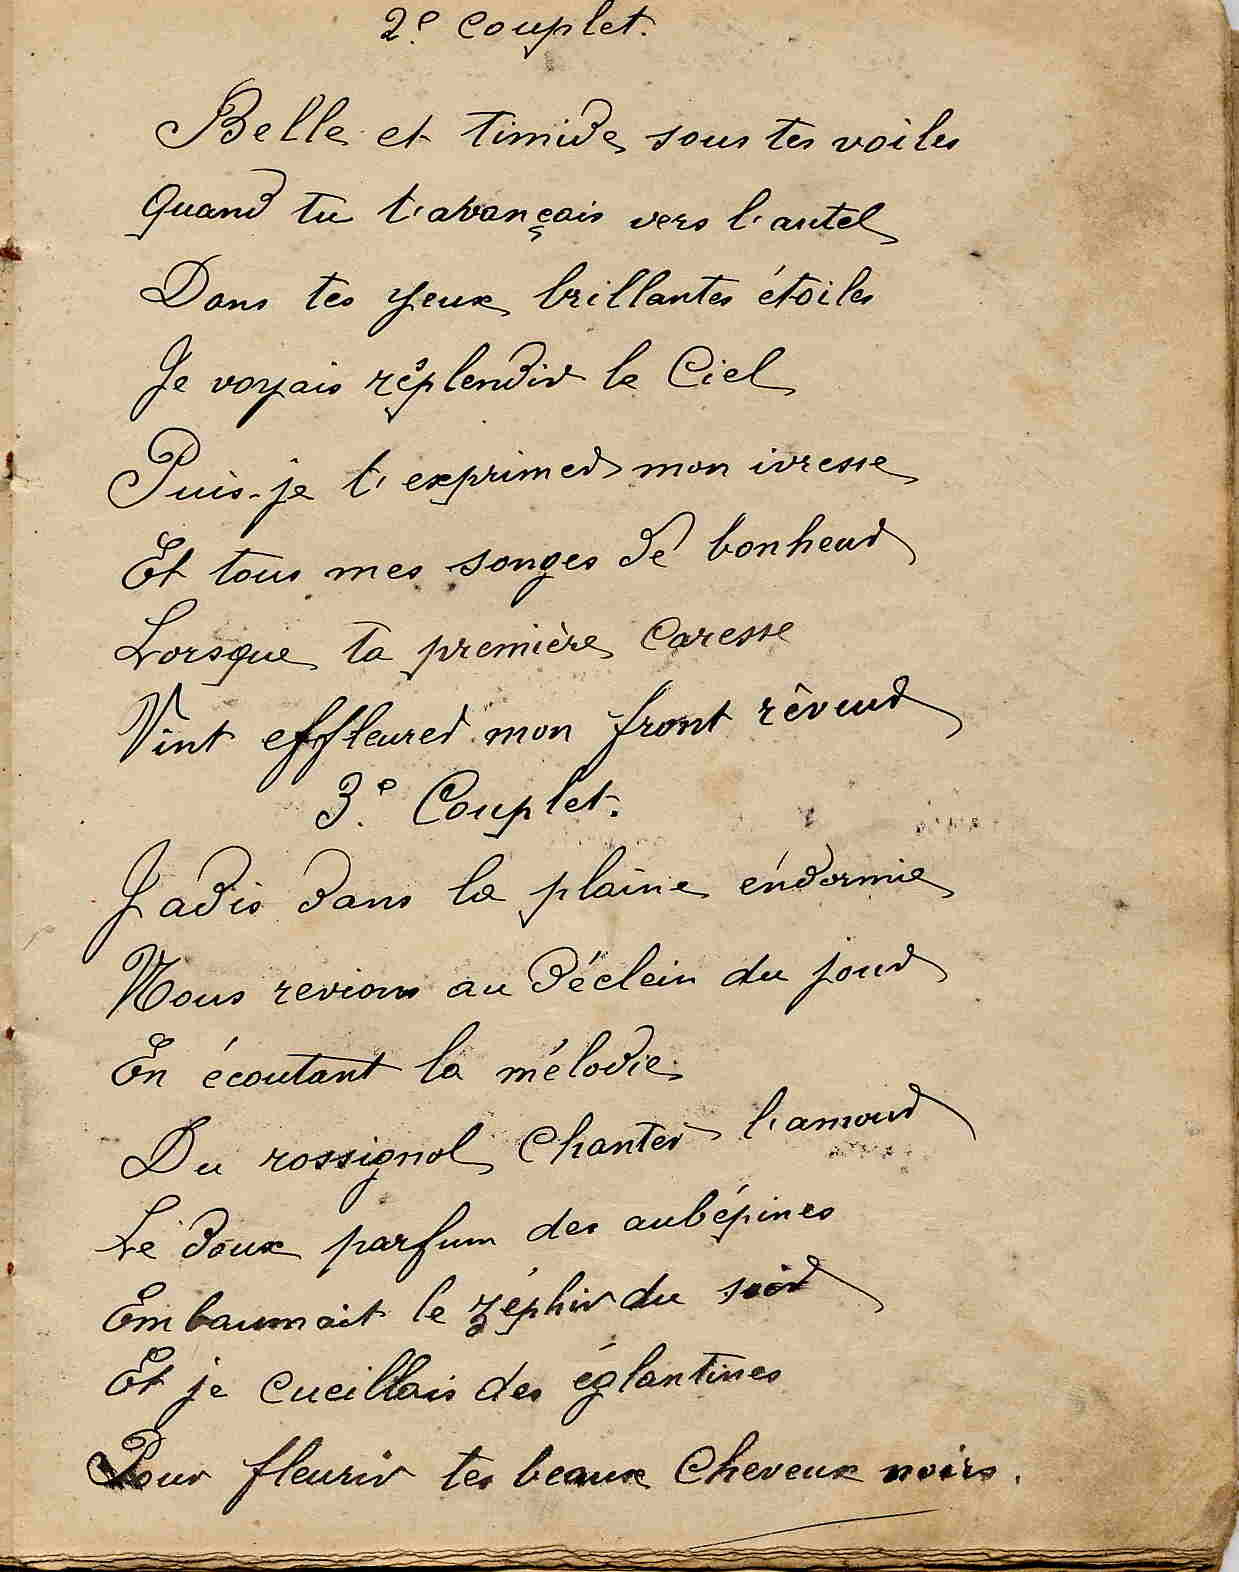 2e Couplet.
Belle et timide sous tes voiles
Quand tu t'avançais vers l'autel
Dans tes yeux brillantes étoiles
Je voyais résplendir le Ciel
Puis-je t'exprimer mon ivresse
Et tous mes songes dé bonheur
Lorsque ta première Caresse
Vint effleurer mon front rêveur
3e Couplet.
Jadis dans la plaine éndormie
Nous revions au déclein du jour
En écoutant la mélodie
Du rossignol Chanter l'amour
Lé doux parfum des aubépines
Embaumait le zéphir du soir
Et je cueillais des églantines
Pour fleurir tes beaux Cheveux noirs.